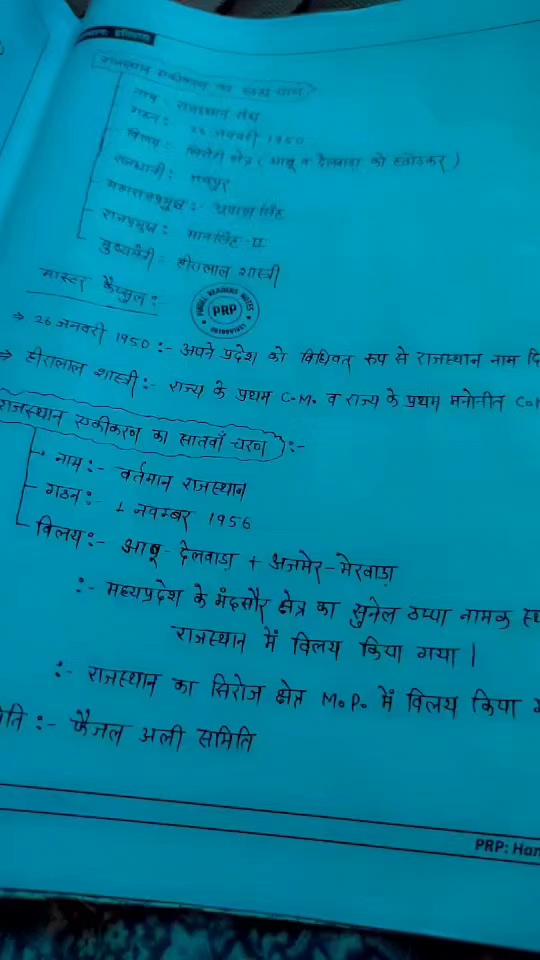 राजस्थान एकीकरण का छठा चरण
नाम : राजस्थान संघ
गठन : 26 जनवरी 1950
विलय : सिरोही क्षेत्र ( आबू व देलवाड़ा को छोड़कर )
राजधानी : जयपुर
महाराजप्रमुख :- भूपाल सिंह
राजप्रमुख : मानसिंह-II
मुख्यमंत्री : हीरालाल शास्त्री
मास्टर कैप्सुल :
PARUL READERS NOTES
PRP
→ 26 जनवरी 1950 :- अपने प्रदेश को विधिवत रूप से राजस्थान नाम
→ हीरालाल शास्त्री :- राज्य के प्रथम C.M. व राज्य के प्रथम मनोनीत
राजस्थान एकीकरण का सातवाँ चरण :-
नाम :- वर्तमान राजस्थान
गठन :- 1 नवम्बर 1956
विलय :- आबू-देलवाड़ा + अजमेर-मेरवाड़ा
:- मध्यप्रदेश के मंदसौर क्षेत्र का सुनेल ठप्पा नामक
राजस्थान में विलय किया गया |
:- राजस्थान का सिरोज क्षेत्र M.P. में विलय किया
:- फैजल अली समिति
PRP: